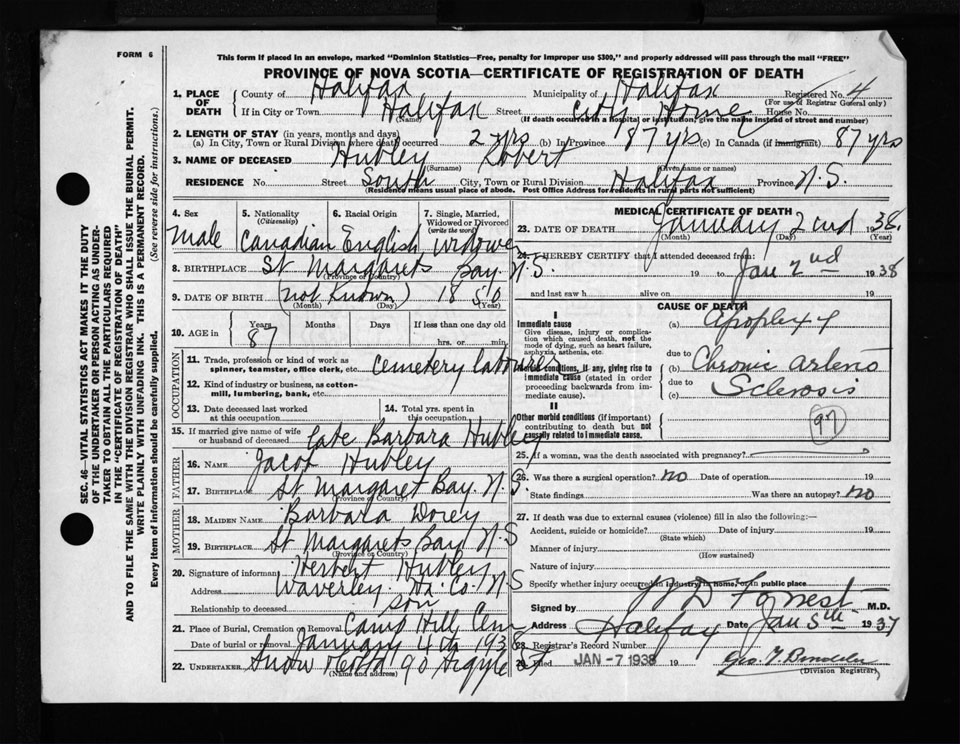 FORM 6
This form if placed in an envelope, marked "Dominion Statistics—Free, penalty for improper use $300," and properly addressed will pass through the mail "FREE"
PROVINCE OF NOVA SCOTIA—CERTIFICATE OF REGISTRATION OF DEATH
SEC. 46—VITAL STATISTICS ACT MAKES IT THE DUTY
OF THE UNDERTAKER OR PERSON ACTING AS UNDER-
TAKER TO OBTAIN ALL THE PARTICULARS REQUIRED
IN THE "CERTIFICATE OF REGISTRATION OF DEATH"
AND TO FILE THE SAME WITH THE DIVISION REGISTRAR WHO SHALL ISSUE THE BURIAL PERMIT.
WRITE PLAINLY WITH UNFADING INK. THIS IS A PERMANENT RECORD.
Every item of information should be carefully supplied. (See reverse side for instructions.)
1. PLACE OF DEATH County of Halifax Municipality of Halifax Registered No. 4
(For use of Registrar General only)
If in City or Town Halifax Street City Home House No.
(Name) (If death occurred in a hospital or institution, give the name instead of street and number)
2. LENGTH OF STAY (in years, months and days)
(a) In City, Town or Rural Division where death occurred 2 yrs (b) In Province 87 yrs (c) In Canada (if immigrant) 87 yrs
3. NAME OF DECEASED Hubley Robert
(Surname) (Given name or names)
RESIDENCE No. Street South City, Town or Rural Division Halifax Province N.S.
(Residence means usual place of abode. Post Office Address for residents in rural parts not sufficient)
4. Sex 5. Nationality (Citizenship) 6. Racial Origin 7. Single, Married, Widowed or Divorced (write the word)
Male Canadian English Widower
8. BIRTHPLACE St Margarets Bay. N.S.
(Province or Country)
9. DATE OF BIRTH (not known) 1850
(Month) (Day) (Year)
10. AGE in Years Months Days If less than one day old
87 hrs. or min.
OCCUPATION
11. Trade, profession or kind of work as spinner, teamster, office clerk, etc. Cemetery Labourer
12. Kind of industry or business, as cotton-mill, lumbering, bank, etc.
13. Date deceased last worked at this occupation 14. Total yrs. spent in this occupation
15. If married give name of wife or husband of deceased Late Barbara Hubley
FATHER
16. NAME Jacob Hubley
17. BIRTHPLACE St Margaret Bay. N.S.
(Province or Country)
MOTHER
18. MAIDEN NAME Barbara Dorey
19. BIRTHPLACE St Margarets Bay N.S
(Province or Country)
20. Signature of informant Herbert Hubley
Address Waverley Ha. Co. N.S
Relationship to deceased son
21. Place of Burial, Cremation or Removal Camp Hill Cem
Date of burial or removal January 4th 1938
22. UNDERTAKER Snow 90 Argyle St
(Name and address)
MEDICAL CERTIFICATE OF DEATH
23. DATE OF DEATH January 2nd 1938.
(Month) (Day) (Year)
24. I HEREBY CERTIFY that I attended deceased from:
19 to Jan 2nd 1938
and last saw h alive on 19
CAUSE OF DEATH
I
Immediate cause
Give disease, injury or complication which caused death, not the mode of dying, such as heart failure, asphyxia, asthenia, etc.
(a) Apoplexy
due to
Morbid conditions, if any, giving rise to immediate cause (stated in order proceeding backwards from immediate).
(b) Chronic Arterio
due to
(c) Sclerosis
II
Other morbid conditions (if important) contributing to death but not causally related to immediate cause.
97
25. If a woman, was the death associated with pregnancy?
26. Was there a surgical operation? no Date of operation 19
State findings Was there an autopsy? no
27. If death was due to external causes (violence) fill in also the following:—
Accident, suicide or homicide? Date of injury 19
(State which)
Manner of injury
(How sustained)
Nature of injury
Specify whether injury occurred in industry, in home, or in public place
Signed by W D Forrest M.D.
Address Halifax Date Jan 5th 1937
28. Registrar's Record Number
Filed JAN -7 1938 19
(Division Registrar)